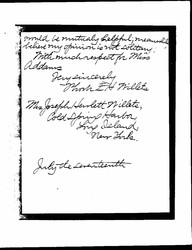 would be mutually helpful, meanwhile
believe my opinion is not solitary.
With much respect for Miss
Addams
Very sincerely
Mrs. E H Willets
Mrs Joseph Howlett Willets,
Cold Spring Harbor
Long Island
New York.
July the seventeenth